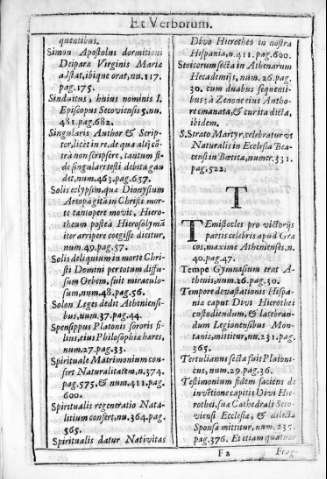 Et Verborum.
quentibus.
Simon Apostolus dormitioni
Deipara Virginis Mariæ
adstat, ibique orat, nu. 117.
pag. 175.
Sindaitus, huius nominis I.
Episcopus Secoviensis 5. nu.
481. pag. 682.
Singularis Author & Scrip-
tor, licit in re, de qua alij cō-
trà non scripsere, tantum fi-
de singularē testi debita gau
det, num. 463. pag. 657.
Solis eclypsim, qua Dionysium
Areopagita in Christi mor-
te tantopere movit, Hiero-
theum posteà Hierosolymā
iter arripere coegisse dicitur,
num. 49. pag. 57.
Solis deliquium in morte Chri-
sti Domini per totum diffu-
sum Orbem, fuit miraculo-
sum, num. 48. pag. 56.
Solon Leges dedit Atheniensi-
bus, num. 37. pag. 44.
Speusippus Platonis sororis fi-
lius, eius Philosophia hæres,
num. 27. pag. 33.
Spirituale Matrimonium con-
fert Naturalitatem, n. 374.
pag. 575. & num. 411. pag.
600.
Spiritualis regeneratio Nata-
litium confert, nu. 364. pag.
565.
Spiritualis datur Nativitas
Divo Hierotheo in nostra
Hispania, n. 411. pag. 600.
Stoicorum secta in Athenarum
Hecademijs, num. 26. pag.
30. cum duabus sequenti-
bus; à Zenone eius Autho-
re emanata, & cur ita dicta,
ibidem.
S. Strato Martyr, celebratur ut
Naturalis in Ecclesia Bea-
tensi in Bætica, numer. 331.
pag. 522.
T
TEmistocles pro victorijs
partis celebris apud Græ
cos, maxime Athenienses, n.
40. pag. 47.
Tempe Gymnasium erat A-
thenis, num. 26. pag. 30.
Tempore devastationis Hispa-
niæ caput Divi Hierothei
custodiendum, & latebran-
dum Legionensibus Mon-
tanis, mittitur, nu. 231. pag.
365.
Tertulianus secta fuit Platoni-
cus, num. 29. pag. 36.
Testimonium fidem faciens de
inventione capitis Divi Hie-
rothei, sua Cathedrali Seco-
viensi Ecclesiæ, & dilecta
Sponsa mittitur, num. 235.
pag. 376. Et etiam quatuor
Fa
Frag-